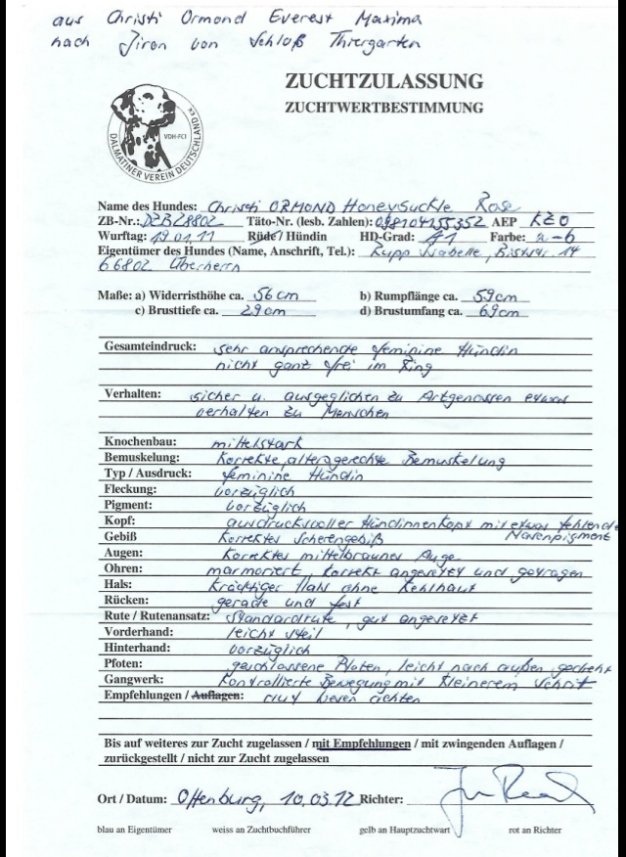 aus Christi Ormond Everest Maxima
nach Jiron von Schloß Thiergarten
ZUCHTZULASSUNG
ZUCHTWERTBESTIMMUNG
VDH-FCI
DALMATINER VEREIN DEUTSCHLAND e.V.
Name des Hundes: Christi ORMOND Honeysuckle Rose
ZB-Nr.: DZB28802 Täto-Nr. (lesb. Zahlen): 098104255352 AEP KZO
Wurftag: 19.01.11 Rüde / Hündin HD-Grad: A1 Farbe: a-b
Eigentümer des Hundes (Name, Anschrift, Tel.): Rupp Isabelle, 14
66802 Überherrn
Maße: a) Widerristhöhe ca. 56 cm b) Rumpflänge ca. 59 cm
c) Brusttiefe ca. 29 cm d) Brustumfang ca. 69 cm
Gesamteindruck: sehr ansprechende feminine Hündin
nicht ganz frei im Ring
Verhalten: sicher u. ausgeglichen zu Artgenossen etwas
verhalten zu Menschen
Knochenbau: mittelstark
Bemuskelung: Korrekte, altersgerechte Bemuskelung
Typ / Ausdruck: feminine Hündin
Fleckung: vorzüglich
Pigment: vorzüglich
Kopf: ausdrucksvoller Hündinnenkopf mit etwas fehlende
Nasenpigment
Gebiß korrektes Scherengebiß
Augen: Korrektes mittelbraunes Auge
Ohren: marmoriert, korrekt angesetzt und getragen
Hals: Kräftiger Hals ohne Kehlhaut
Rücken: gerade und fest
Rute / Rutenansatz: Standardrute, gut angesetzt
Vorderhand: leicht steil
Hinterhand: vorzüglich
Pfoten: geschlossene Pfoten, leicht nach außen gedreht
Gangwerk: Kontrollierte Bewegung mit kleinerem Schritt
Empfehlungen / Auflagen: auf achten
Bis auf weiteres zur Zucht zugelassen / mit Empfehlungen / mit zwingenden Auflagen /
zurückgestellt / nicht zur Zucht zugelassen
Ort / Datum: Offenburg, 10.03.12 Richter:
blau an Eigentümer weiss an Zuchtbuchführer gelb an Hauptzuchtwart rot an Richter